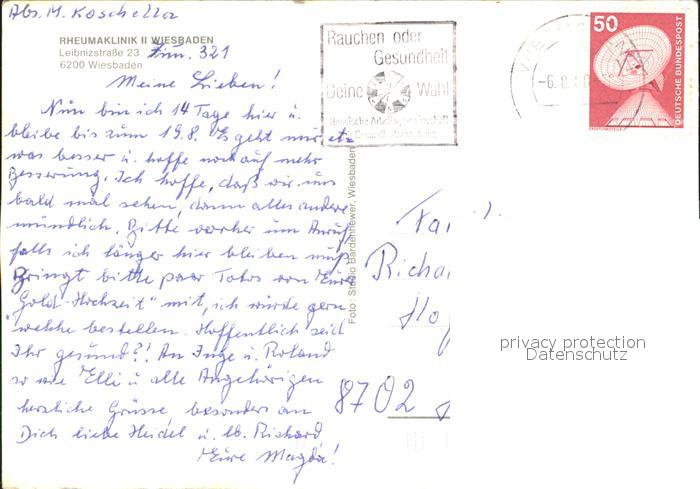 Abs. M. Koschella
RHEUMAKLINIK II WIESBADEN
Leibnizstraße 23 Zim. 321
6200 Wiesbaden
Meine Lieben!
Nun bin ich 14 Tage hier u.
bleibe bis zum 19.8. Es geht mir etw
was besser u. hoffe noch auf mehr
Besserung. Ich hoffe, daß wir uns
bald mal sehen, dann alles andere
mündlich. Bitte vorher um Anruf
falls ich länger hier bleiben muß
Bringt bitte paar Fotos von Eurer
"Gold-Hochzeit" mit, ich würde gern
welche bestellen. Hoffentlich seid
Ihr gesund?! An Inge u. Roland
so wie Elli u. alle Angehörigen
herzliche Grüsse, besonders an
Dich liebe Heidel u. lb. Richard
Eure Magda!
Foto: Studio Bardenhewer, Wiesbaden
Rauchen oder
Gesundheit
Deine Wahl
-6.8.
50
DEUTSCHE BUNDESPOST
Fa
Richa
Ho
8702
privacy protection
Datenschutz